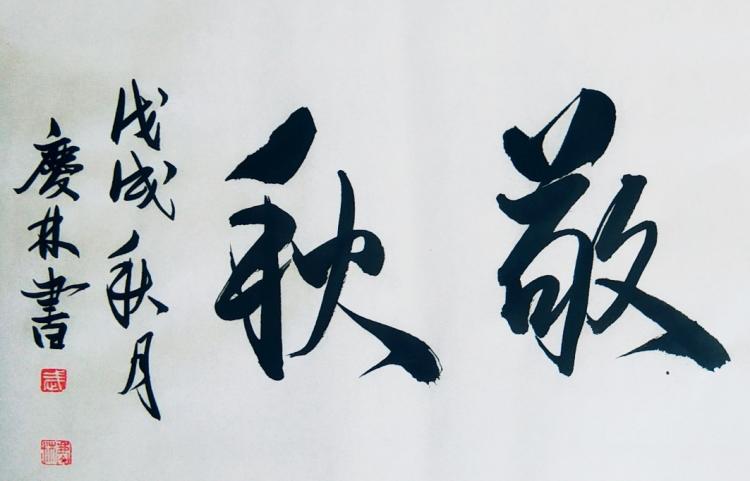 敬秋
戊戌秋月
慶林書
武